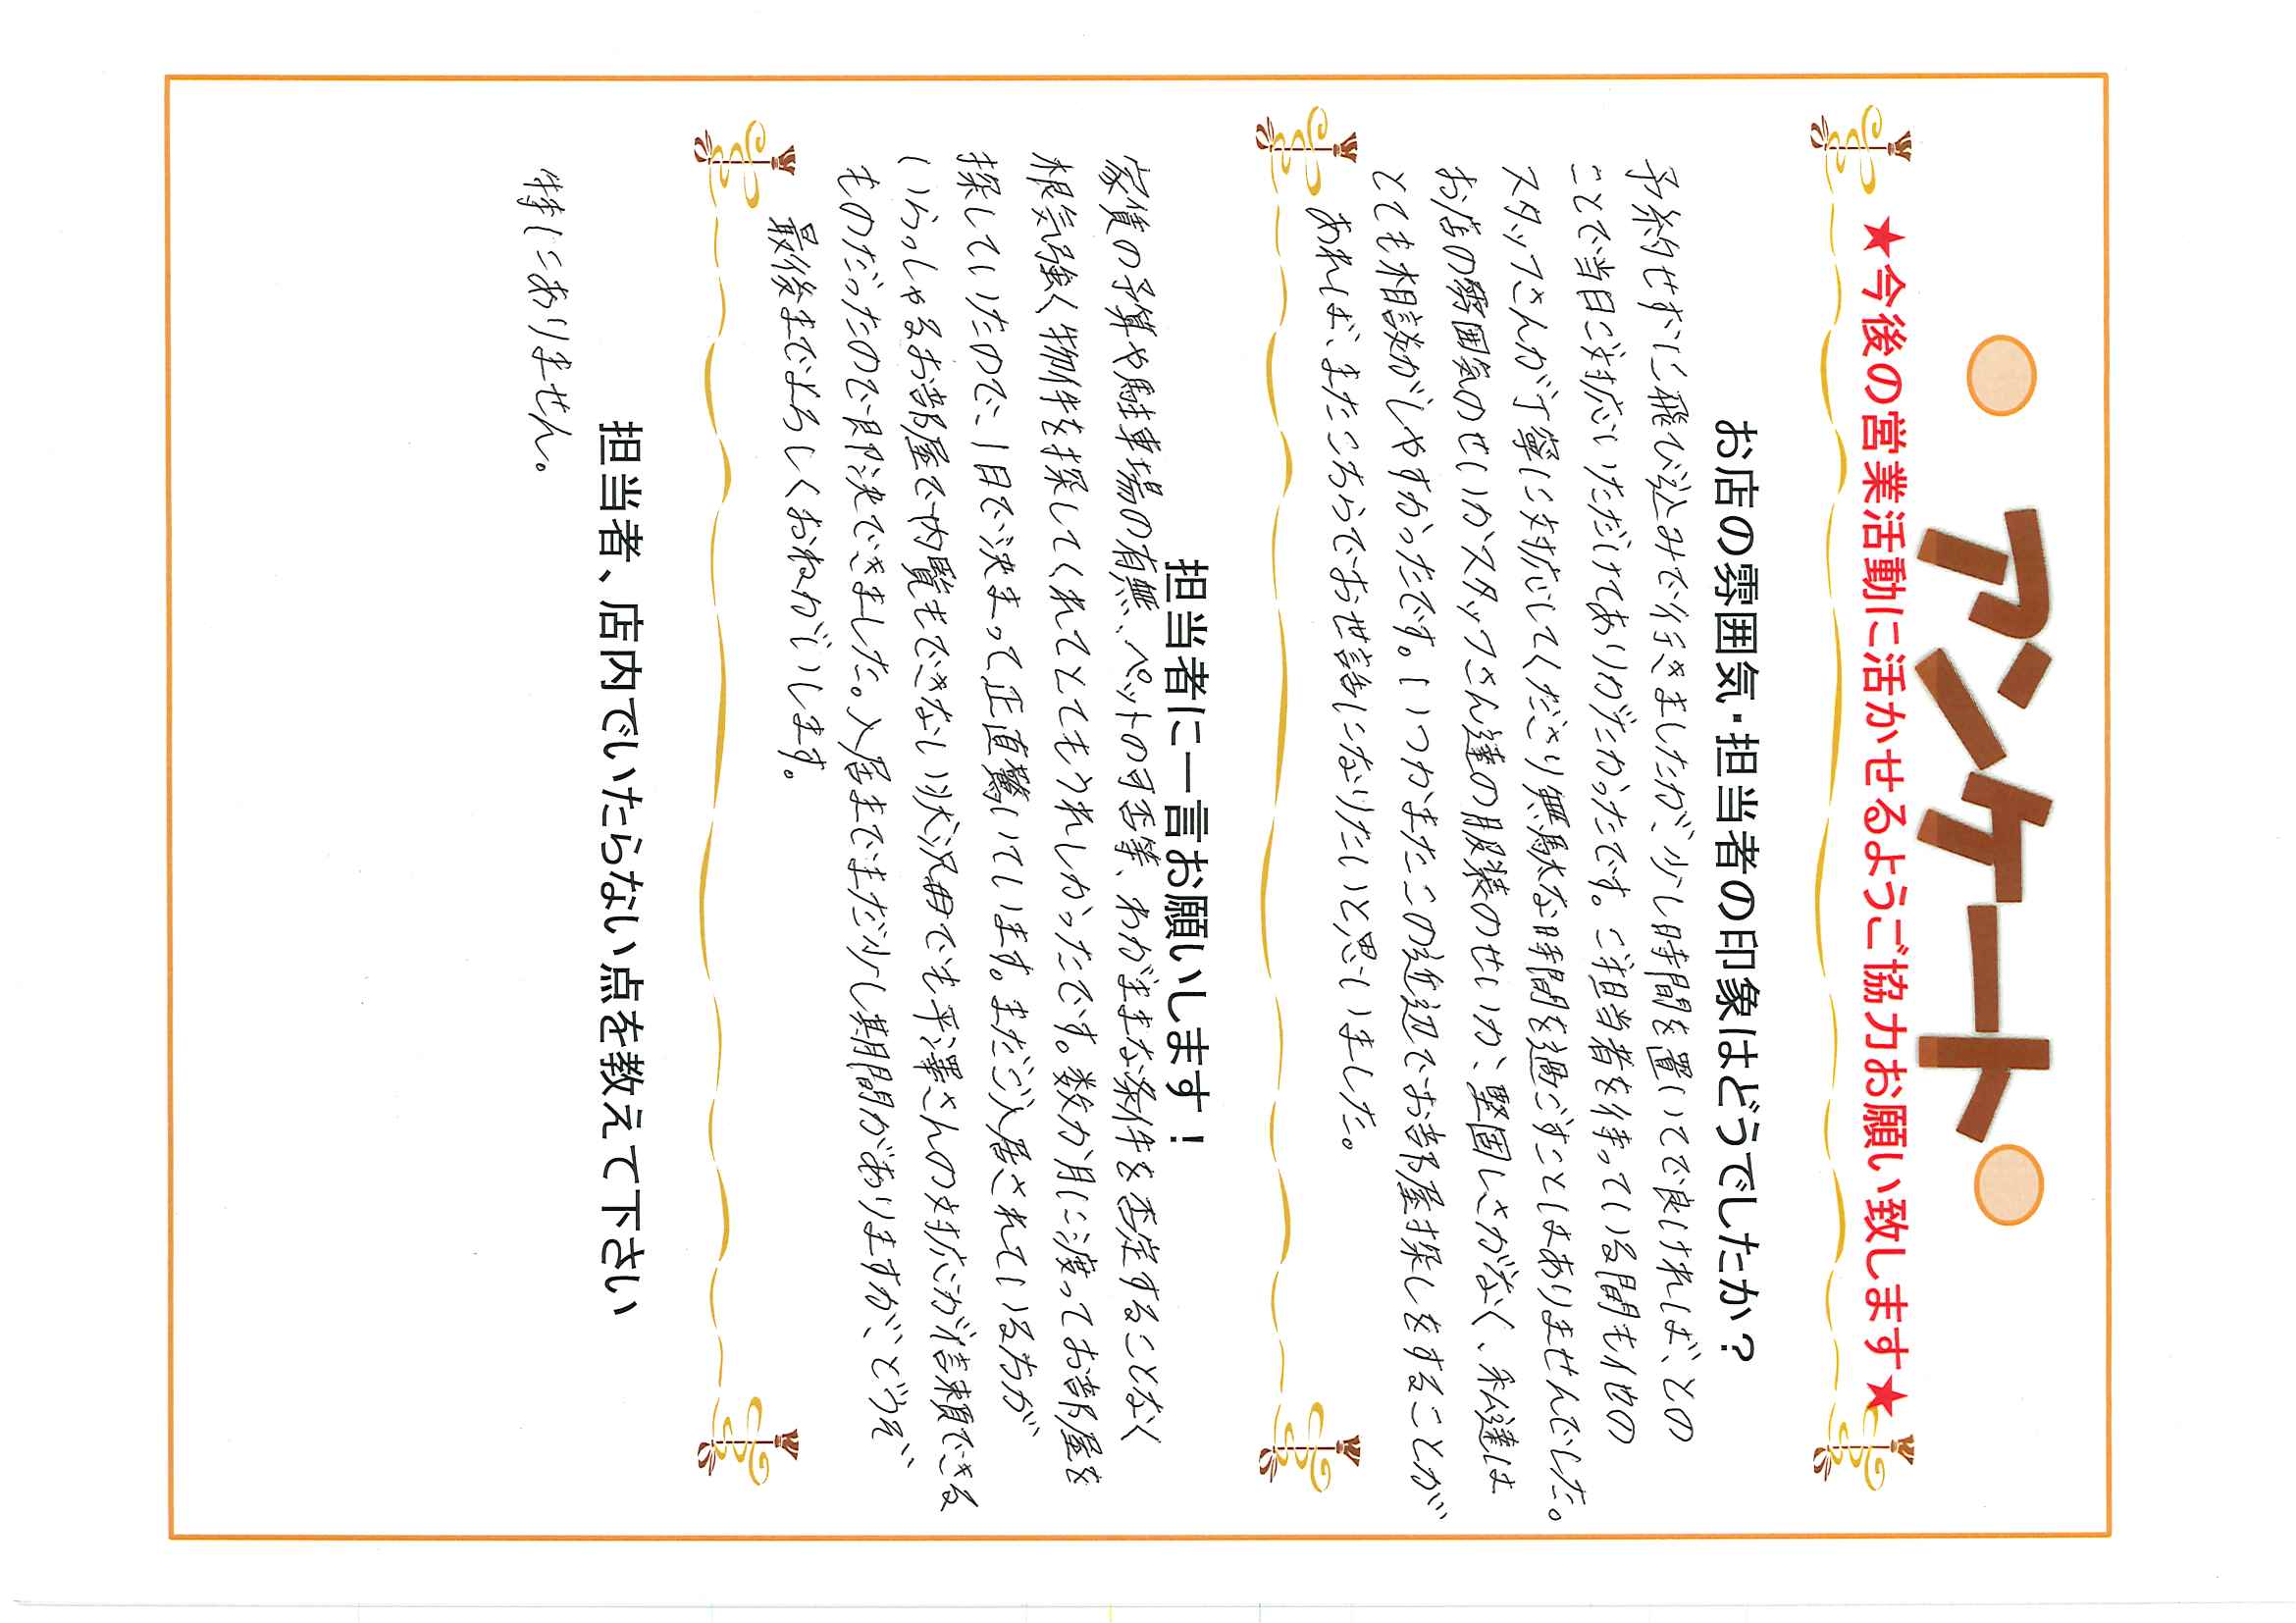 アンケート
★今後の営業活動に活かせるようご協力お願い致します★
お店の雰囲気・担当者の印象はどうでしたか？
予約せずに飛び込みで行きましたが、少し時間を置いてで良ければ、との
ことで当日に対応いただけてありがたかったです。ご担当者を待っている間も他の
スタッフさんが丁寧に対応してくださり無駄な時間を過ごすことはありませんでした。
お店の雰囲気のせいかスタッフさん達の服装のせいか、堅固しさがなく、私達は
とても相談がしやすかったです。いつかまたこの近辺でお部屋探しをすることが
あれば、またこちらでお世話になりたいと思いました。
担当者に一言お願いします！
家賃の予算や駐車場の有無、ペットの可否等、わがままな条件を否定することなく
根気強く物件を探してくれてとてもうれしかったです。数カ月に渡ってお部屋を
探していたので、1日で決まって正直驚いています。まだご入居されている方が
いらっしゃるお部屋で内覧もできない状況毋でも平澤さんの対応が信頼できる
ものだったので即決できました。入居までまだ少し期間がありますが、どうぞ、
最後までよろしくおねがいします。
担当者、店内でいたらない点を教えて下さい
特にありません。